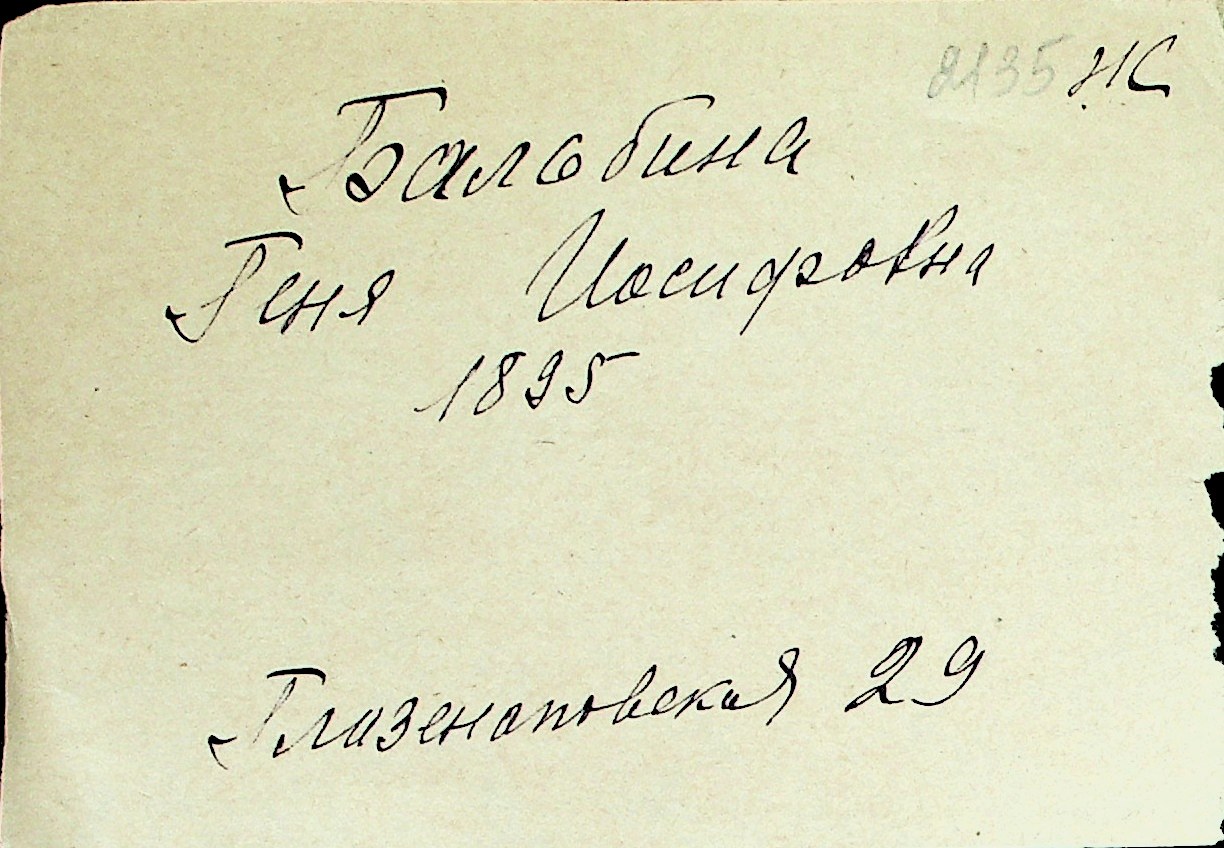 2135 Ж
Бальбина
Геня Иосифовна
1895
Глазенаповская 29